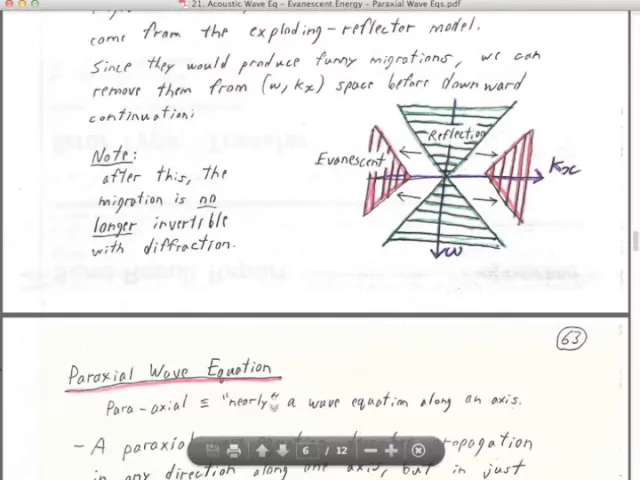 21. Acoustic Wave Eq - Evanescent Energy - Paraxial Wave Eqs.pdf
come from the exploding-reflector model.
Since they would produce funny migrations, we can
remove them from (w, kx) space before downward
continuation:
Note:
after this, the
migration is no
longer invertible
with diffraction.
Reflection
Evanescent
Kx
w
63
Paraxial Wave Equation
Para-axial ≡ "nearly" a wave equation along an axis.
- A paraxial
propagation
in any direction along one axis, but in just
6 / 12